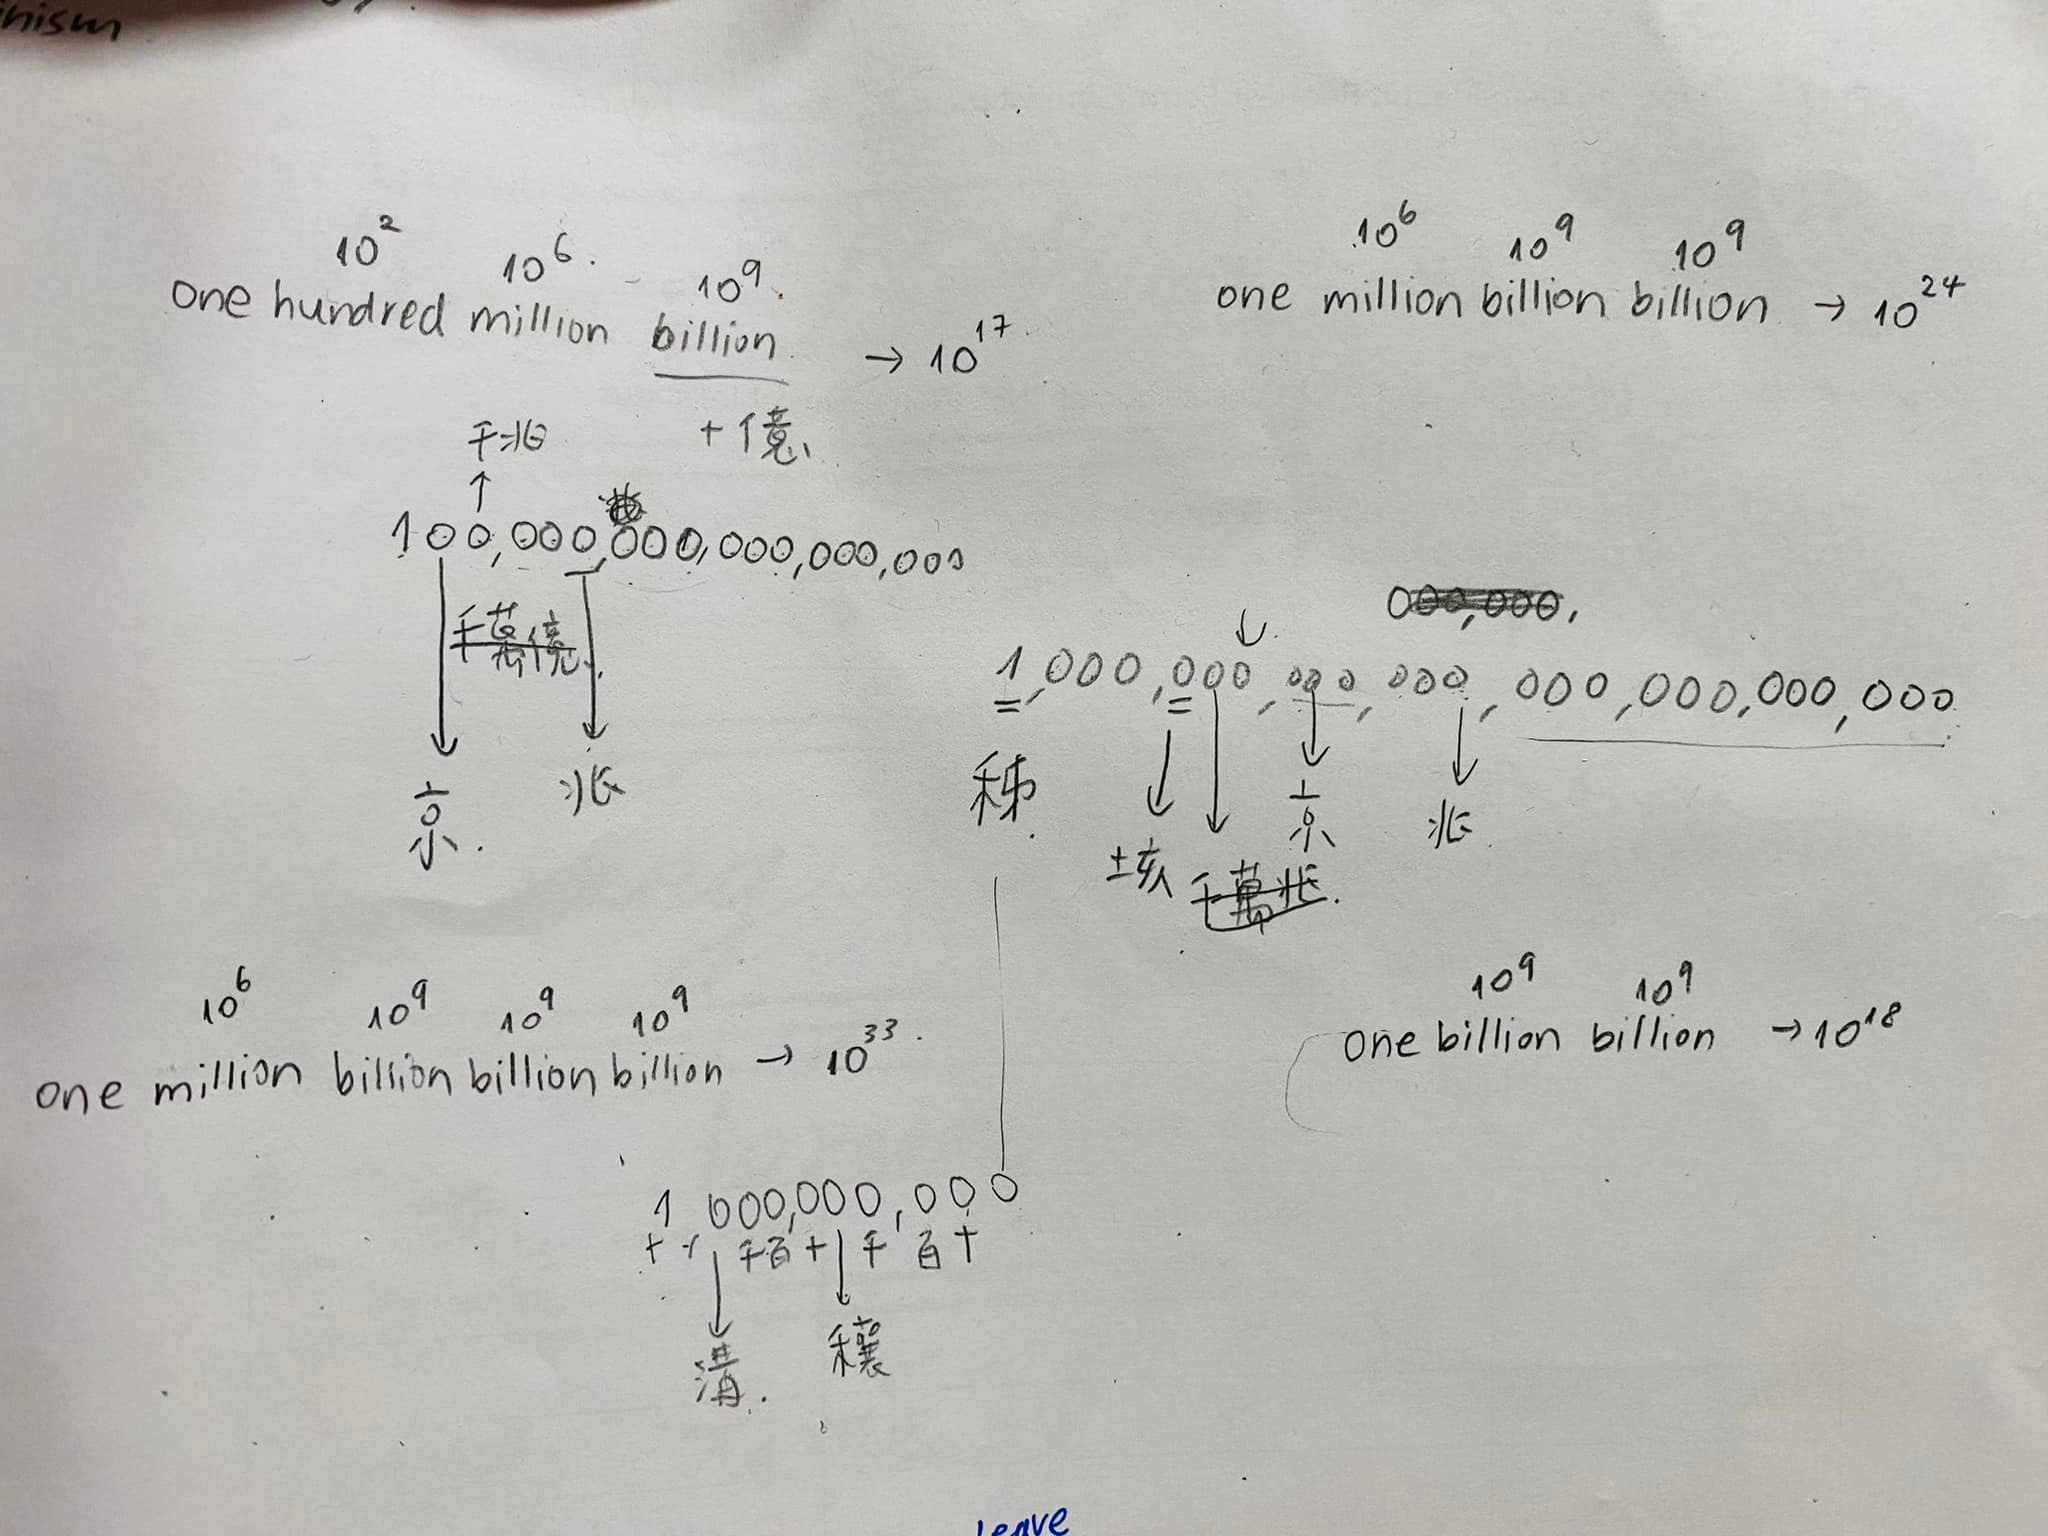 nism
10² 10⁶. 10⁹
one hundred million billion → 10¹⁷
十億、
千兆
100,000,000,000,000,000
千萬億
京. 兆
10⁶ 10⁹ 10⁹
one million billion billion → 10²⁴
000,000,
1,000,000,000,000,000,000,000,000
秭 垓 千萬兆. 京 兆
10⁶ 10⁹ 10⁹ 10⁹
one million billion billion billion → 10³³.
10⁹ 10⁹
one billion billion → 10¹⁸
1 000,000,000
十 千百十 千 百十
溝. 穰
leave